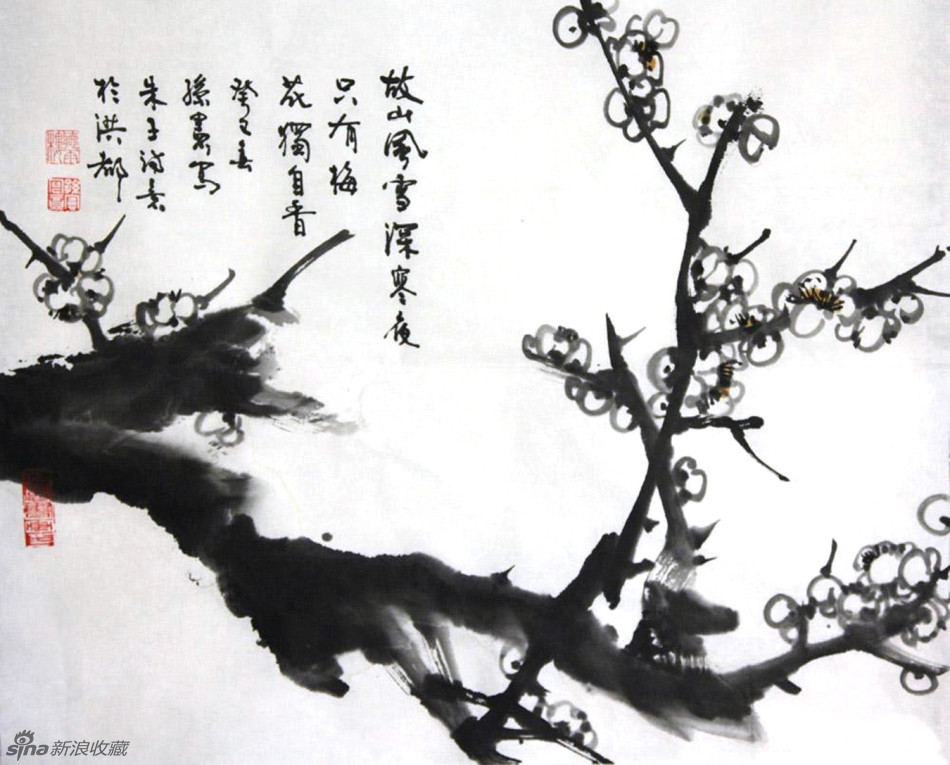 故山風雪深寒夜
只有梅
花獨自香
癸巳春
孫寫
朱子詩意
於洪都
sina新浪收藏